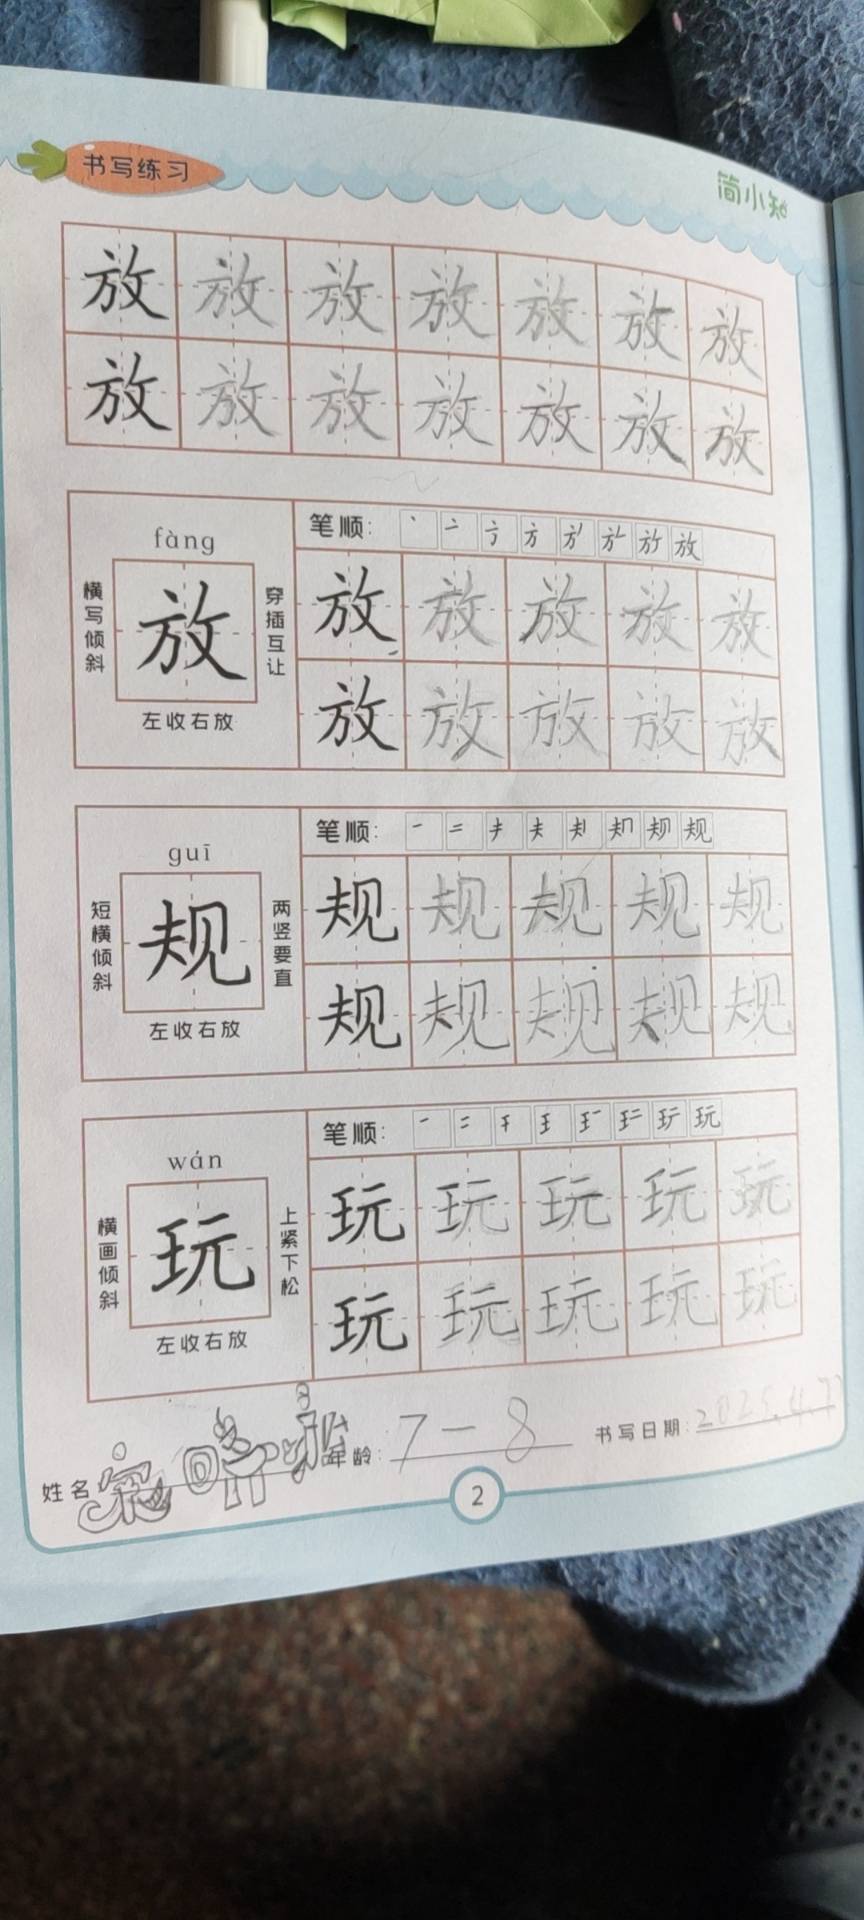 书写练习
简小知
放 放 放 放 放 放 放
放 放 放 放 放 放 放
fàng
横写倾斜
放
穿插互让
左收右放
笔顺: 放
放 放 放 放 放
放 放 放 放 放
guī
短横倾斜
规
两竖要直
左收右放
笔顺: 一 二 规
规 规 规 规 规
规 规 规 规 规
wán
横画倾斜
玩
上紧下松
左收右放
笔顺: 一 二 玩
玩 玩 玩 玩 玩
玩 玩 玩 玩 玩
姓名 年龄: 7-8 书写日期: 2025.4.7
2